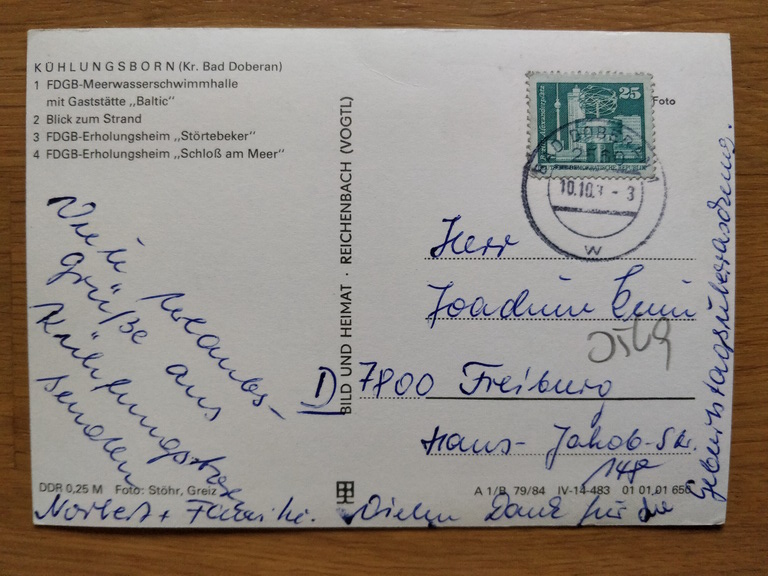 KÜHLUNGSBORN (Kr. Bad Doberan)
1 FDGB-Meerwasserschwimmhalle
mit Gaststätte „Baltic"
2 Blick zum Strand
3 FDGB-Erholungsheim „Störtebeker"
4 FDGB-Erholungsheim „Schloß am Meer"
Viele Urlaubs-
grüße aus
Kühlungsborn
senden
Norbert + Familie. Vielen Dank für die
Geburtstagsüberraschung.
DDR 0,25 M Foto: Stöhr, Greiz
BILD UND HEIMAT · REICHENBACH (VOGTL)
A 1/B 79/84 IV-14-483 01 01 01 656
Foto
25
Alexanderplatz
BAD DOBERAN
2560
10.10. - 3
W
Herr
Joachim
D 7800 Freiburg
Hans-Jakob-Str.